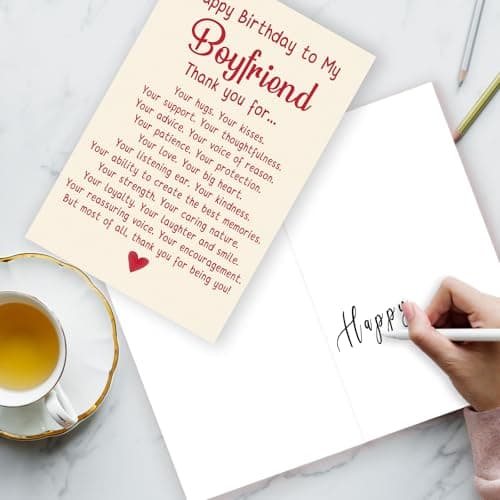 Happy Birthday to My
Boyfriend
Thank you for...
Your hugs. Your kisses.
Your support. Your thoughtfulness.
Your advice. Your voice of reason.
Your patience. Your protection.
Your love. Your big heart.
Your listening ear. Your kindness.
Your ability to create the best memories.
Your strength. Your caring nature.
Your loyalty. Your laughter and smile.
Your reassuring voice. Your encouragement.
But most of all, thank you for being you!
Happy